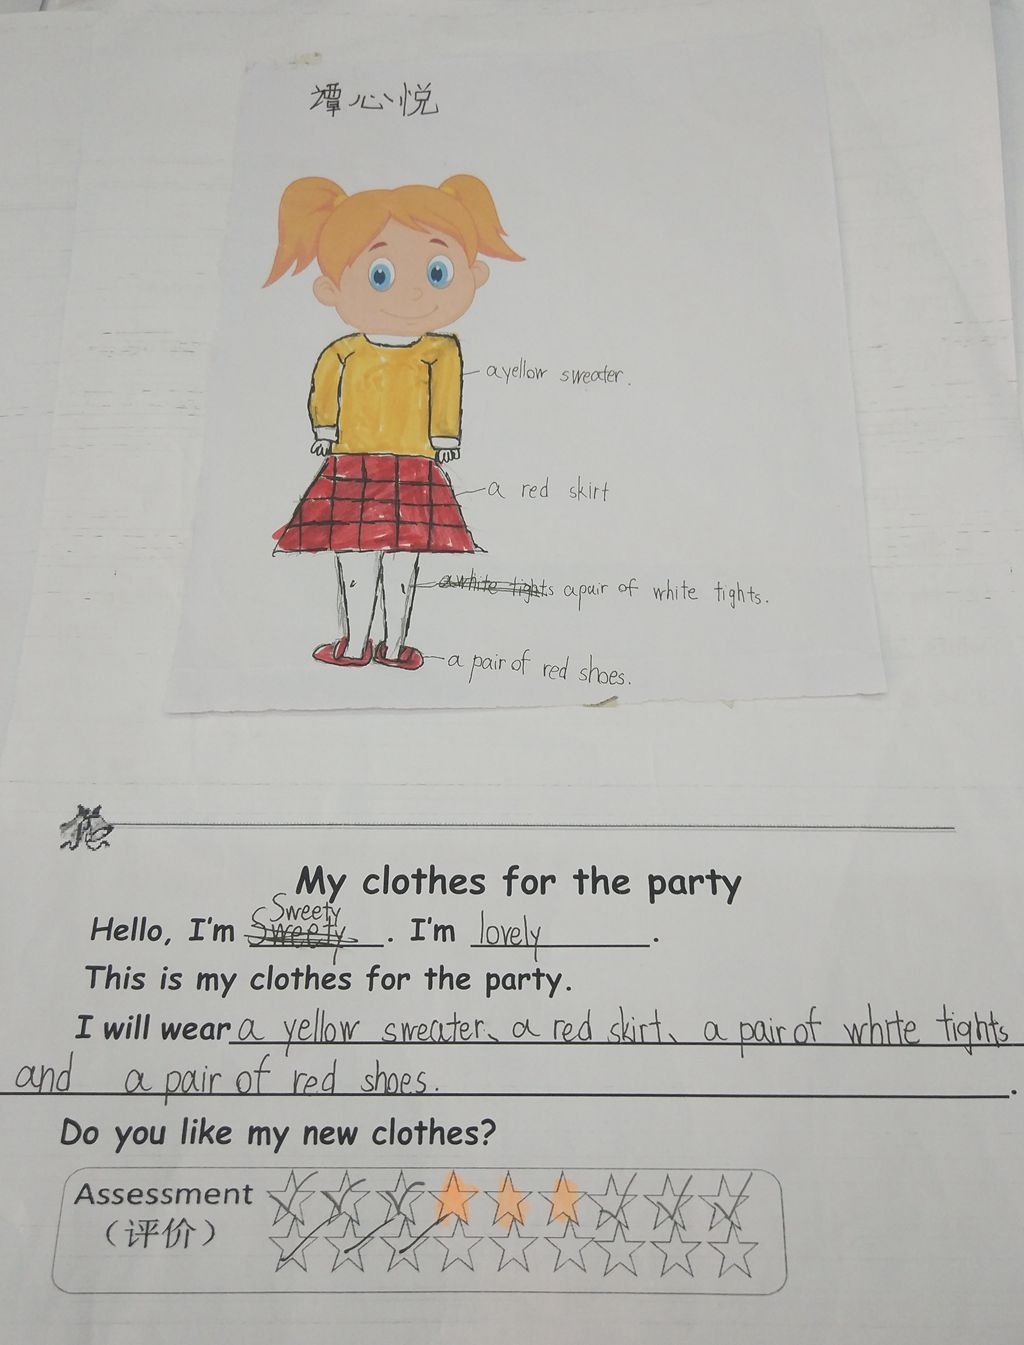 潭心悦
a yellow sweater.
a red skirt
a white tights a pair of white tights.
a pair of red shoes.
My clothes for the party
Sweety
Hello, I'm Sweety. I'm lovely.
This is my clothes for the party.
I will wear a yellow sweater、a red skirt、a pair of white tights
and a pair of red shoes. .
Do you like my new clothes?
Assessment
（评价）